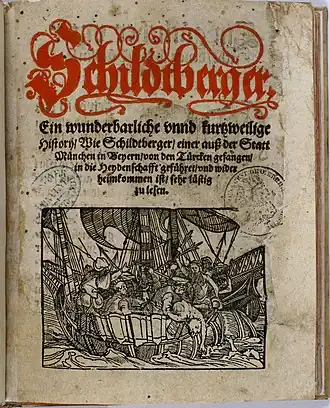 Schildtberger,
Ein wunderbarliche vnnd kurtzweilige
Histori/ Wie Schildtberger/ einer auß der Statt
München in Beyern/ von den Türcken gefangen/
in die Heydenschafft geführet/ vnd wider
heimkommen ist/ sehr lüstig
zu lesen.